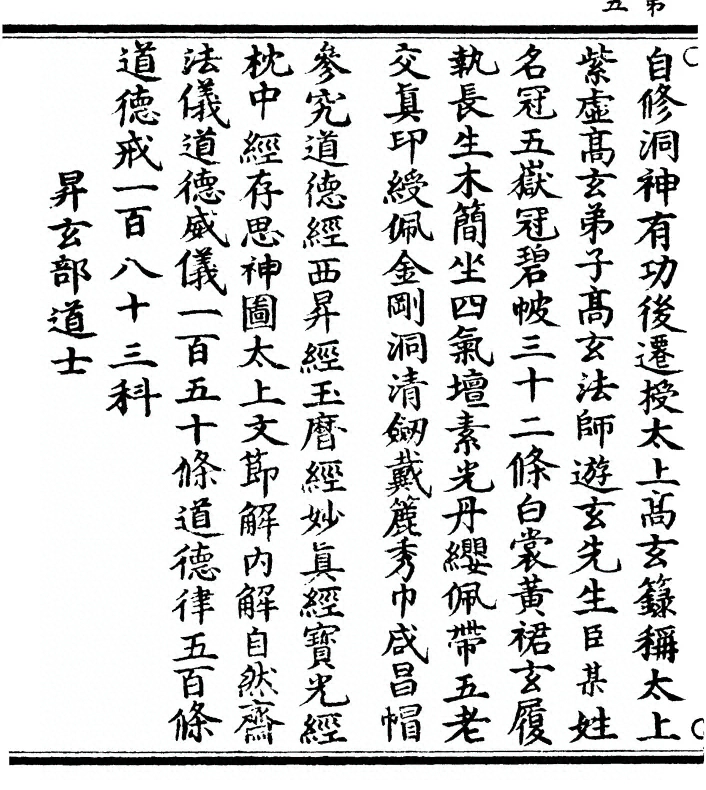 第
五
自修洞神有功後遷授太上高玄籙稱太上
紫虛高玄弟子高玄法師遊玄先生臣某姓
名冠五嶽冠碧帔三十二條白裳黃裙玄履
執長生木簡坐四氣壇素光丹纓佩帶五老
交真印綬佩金剛洞清劒戴簏秀巾咸昌帽
參究道德經西昇經玉曆經妙真經寶光經
枕中經存思神圖太上文節解內解自然齋
法儀道德威儀一百五十條道德律五百條
道德戒一百八十三科
昇玄部道士